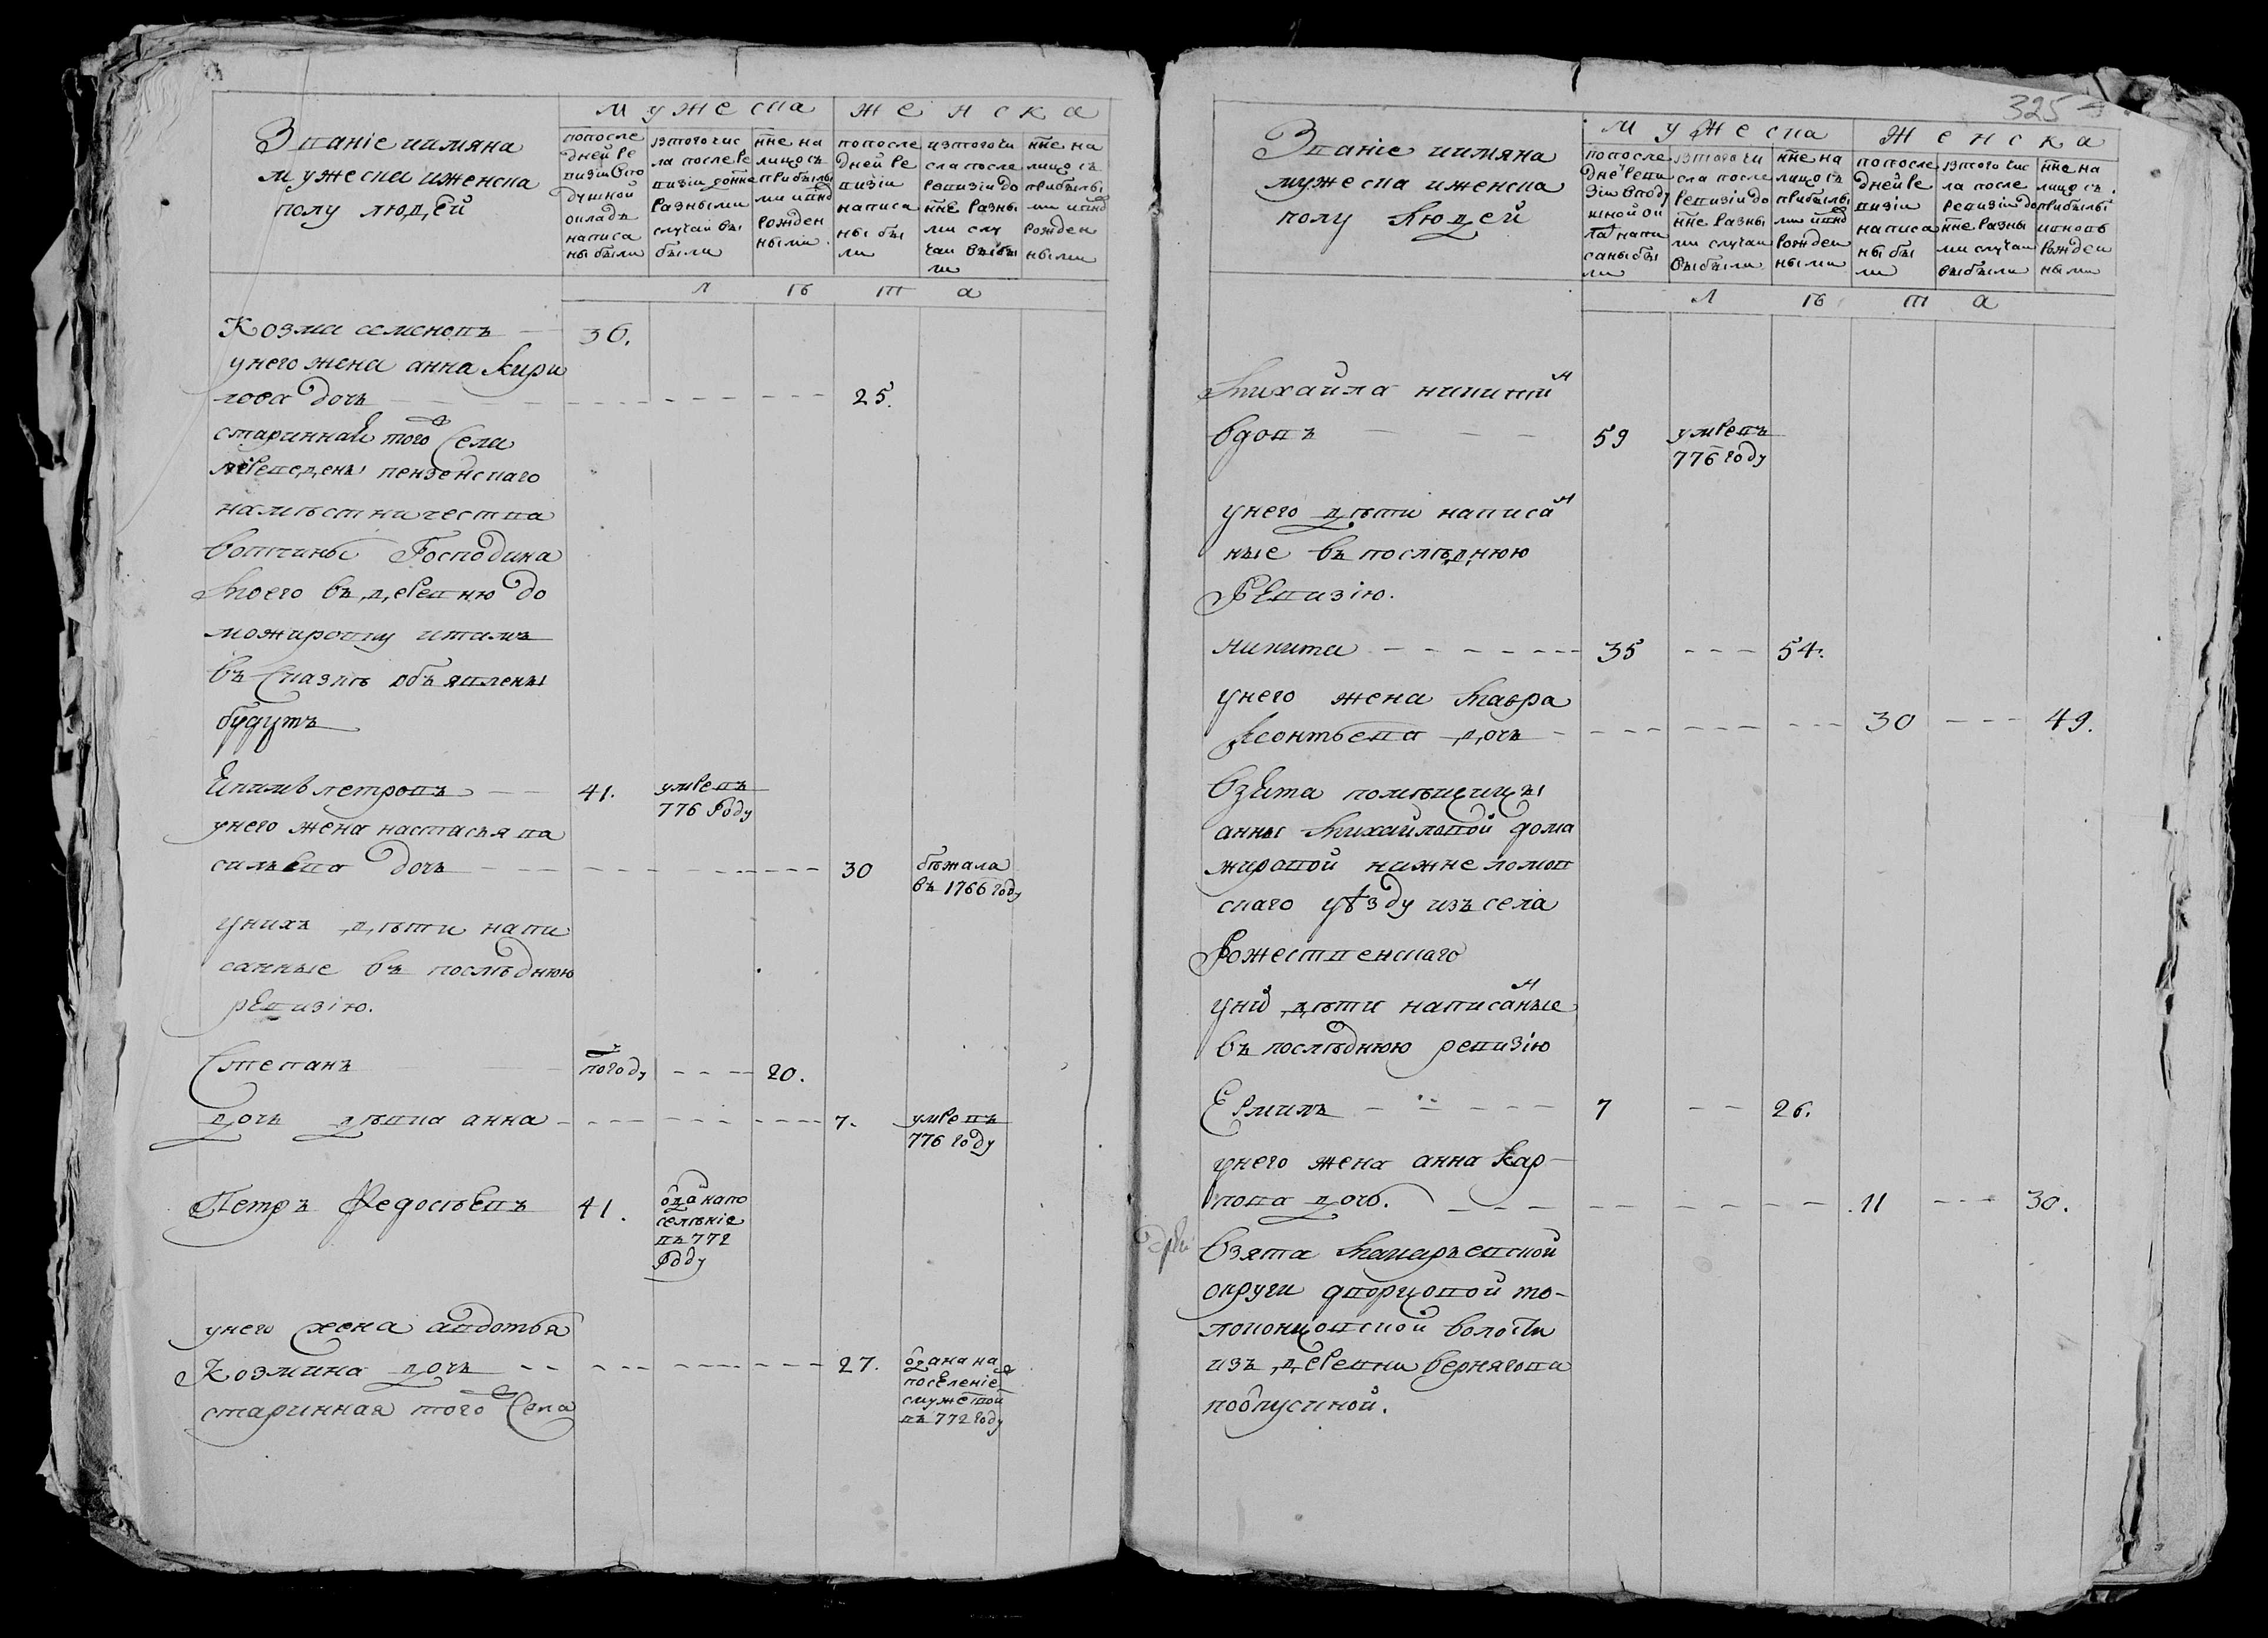 Званіе иимяна
мужеска иженска
полу людей
мужеска женска
попосле
дней ре
визіи впо
душной
окладъ
написа
ны были
изтого чис
ла после ре
визіи донне
разными
случаи вы
были
нне на
лицо съ
прибылы
ми ивнов
рожден
ными
попосле
дней ре
визіи
написа
ны бы
ли
изтогочи
сла после
ревизіи до
нне разны
ми слу
чаи выбы
ли
нне на
лицо съ
прибылы
ми ивнов
рожден
ными
лѣта
Козма семеновъ 36.
унего жена анна кири
лова дочь 25.
старинная того Села
переведены пензенскаго
намѣстничества
вотчины Господина
моего въ деревню до
можировку итамъ
въ Сказкѣ объявлены
будутъ
Екимъ петровъ 41. умревъ
776 году
унего жена настасья ва
сильева дочь 30 бѣжала
въ 1766 году
унихъ дѣти напи
санные въ послѣднюю
ревизію.
Степанъ погоду 20.
дочь дѣвка анна 7. умревъ
776 году
Петръ Федосѣевъ 41. оданапо
селѣніе
въ 772
году
унего жена авдотья
Козмина дочь 27. одана на
поселеніе
смужемъ
въ 772 году
старинная того Села
325
Званіе иимяна
мужеска иженска
полу людей
мужеска женска
попосле
дней реви
зіи впод
шной ок
ла напи
саны бы
ли
изтого чи
сла после
ревизіи до
нне разны
ми случаи
выбыли
нне на
лицо съ
прибылы
ми ивнов
рожден
ными
попосле
дней ре
визіи
написа
ны бы
ли
изтого чис
ла после
ревизіи до
нне разны
ми случаи
выбыли
нне на
лицо съ
прибылы
ивновь
рожден
ными
лѣта
Михайла никитин
вдовъ 59 умревъ
776 году
унего дѣти написан
ные въ послѣднюю
Ревизію.
никита 35 54.
унего жена Мавра
Леонтьева дочь 30 49.
взята помѣщицы
анны Михайловой дома
жировой нижнеломов
скаго уѣзду изъ села
Рожественскаго
уних дѣти написанные
въ послѣднюю ревизію
Ермилъ 7 26.
унего жена анна Кар
пова дочь. 11 30.
взята Макарьевской
округи дворцовой то-
локонцовской волости
изъ деревни вернягова